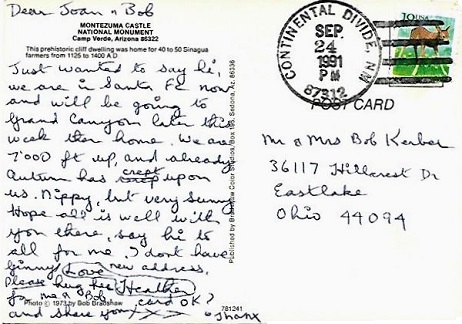 Dear Joan n Bob
MONTEZUMA CASTLE
NATIONAL MONUMENT
Camp Verde, Arizona 86322
This prehistoric cliff dwelling was home for 40 to 50 Sinagua
farmers from 1125 to 1400 A.D.
Just wanted to say hi,
we are in Santa Fe now
and will be going to
Grand Canyon later this
week then home. We are
7'000 ft up, and already
Autumn has crept upon
us. Nippy, but very sunny
Hope all is well with
you there, say hi to
all for me. I dont have
Ginny new address,
Love
Please hug her Heather
for me n Bob card OK?
and share your XXX thanx
Photo © 1973 by Bob Bradshaw
781241
Published by Bradshaw Color Studios, Box 195, Sedona, Az. 86336
CONTINENTAL DIVIDE, NM
SEP
24
1991
PM
87312
19 USA
POST CARD
Mr & Mrs Bob Kerber
36117 Hillcrest Dr
Eastlake
Ohio 44094